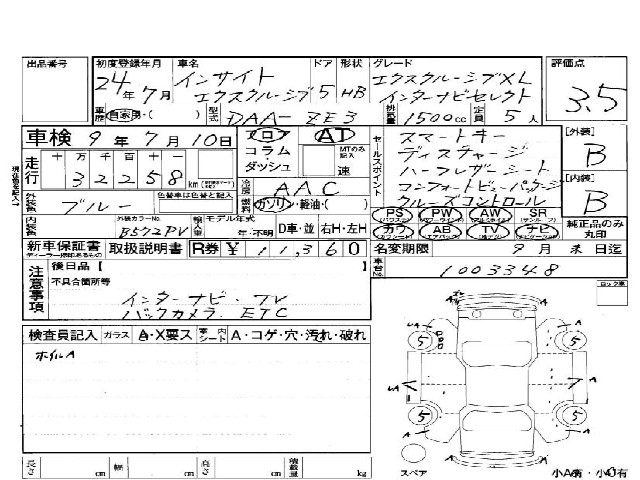 出品番号 初度登録年月 車名 ドア 形状 グレード 評価点
24年7月 インサイト エクスクルーシブ 5 HB エクスクルーシブXL インターナビセレクト 3.5
車歴 自家用・( ) 型式 DAA-ZE3 排気量 1500cc 定員 5人
車検 9年7月10日 フロア AT セールスポイント スマートキー [外装]
コラム MTのみ記入 ディスチャージ B
走行 十万千百十 ダッシュ 速 ハーフレザーシート
32258 km 冷房 AAC コンフォートビューパッケージ [内装]
外装色 ブルー 色替車は色替と記入 燃料 ガソリン・軽油・( ) クルーズコントロール B
PS PW AW SR
内装色 外装カラーNo. B572PV 輸入車 モデル年式 年・不明 D車・並 右H・左H カワ AB TV ナビ 純正品のみ丸印
新車保証書 取扱説明書 R券 ¥11,360 名変期限 9月末日迄
ディーラー捺印あるもの
注意事項 後日品【 】 車台No. 1003348
不具合箇所等 ロック車
インターナビ TV
バックカメラ ETC
検査員記入 ガラス A・X要ス 室内シート A・コゲ・穴・汚れ・破れ
ホイルA
長さ cm 幅 cm 高さ cm 積載量 kg
スペア 小A有・小U有